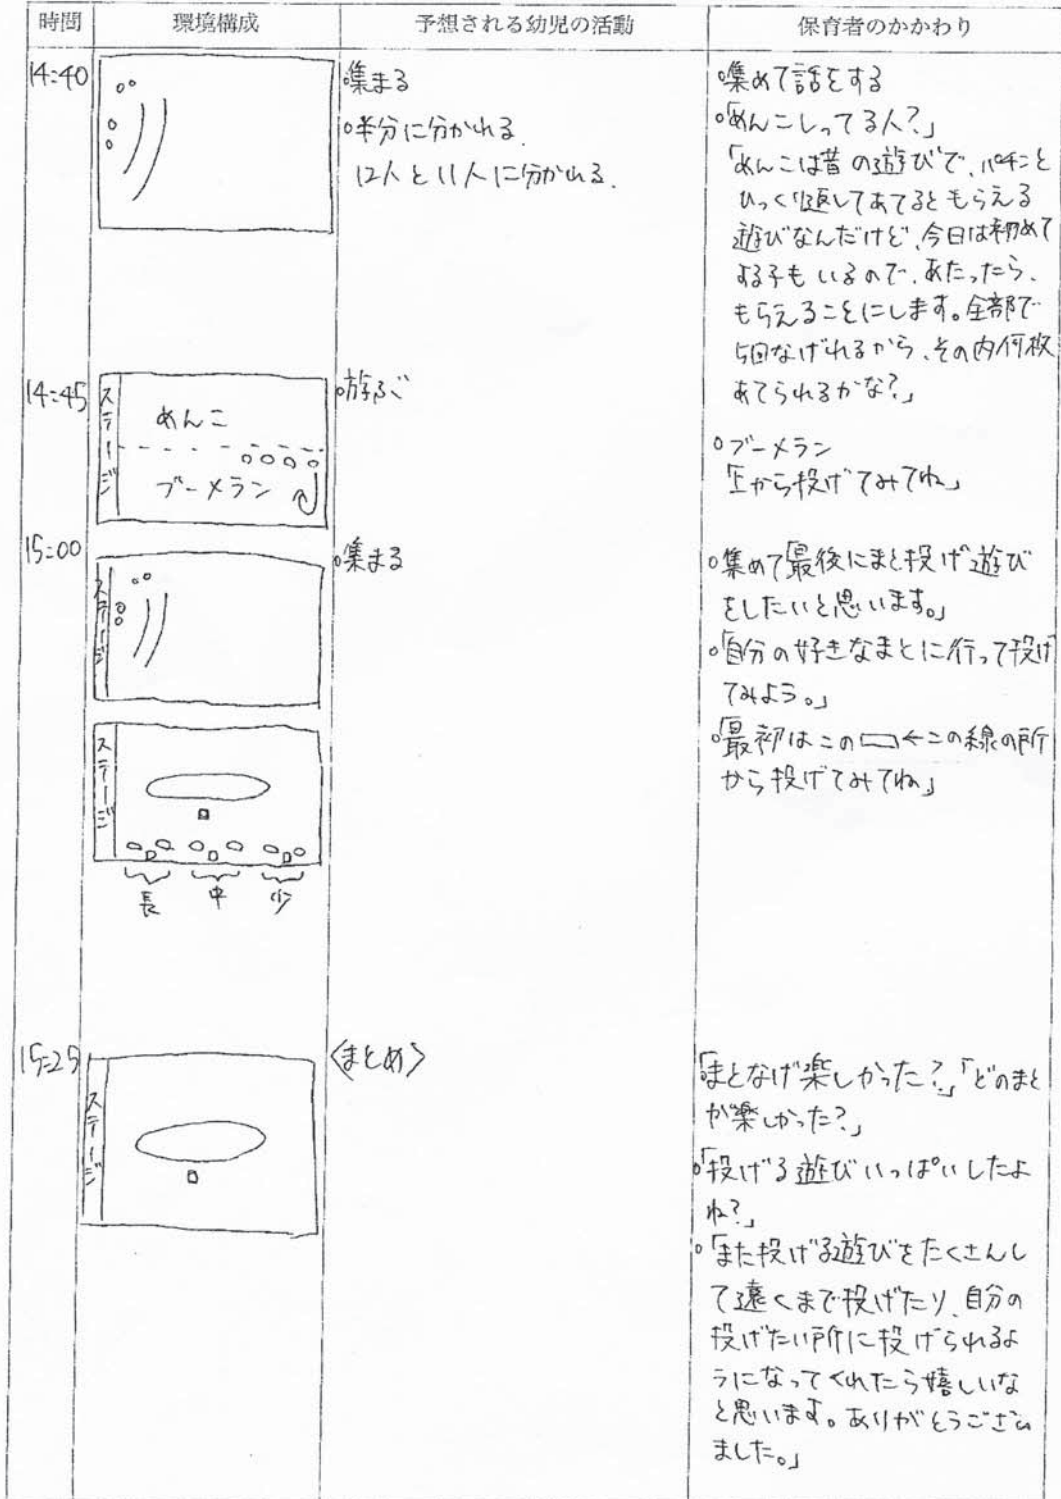 時間 環境構成 予想される幼児の活動 保育者のかかわり
14:40
◦集まる
◦半分に分かれる.
12人と11人に分かれる.
◦集めて話をする
◦「めんこしってる人?」
「めんこは昔の遊びで、パチンと
ひっくり返してあてるともらえる
遊びなんだけど、今日は初めて
する子もいるので、あたったら、
もらえることにします。全部で
5回なげれるから、その内何枚
あてられるかな?」
14:45
ステージ
めんこ
ブーメラン
◦遊ぶ
◦ブーメラン
「上から投げてみてね」
15:00
ステージ
◦集まる
◦集めて「最後にまと投げ遊び
をしたいと思います。」
◦「自分の好きなまとに行って投げ
てみよう。」
◦「最初はこの▭←この線の所
から投げてみてね」
ステージ
長 中 少
15:25
ステージ
〈まとめ〉
「まとなげ楽しかった?」「どのまと
が楽しかった?」
◦「投げる遊びいっぱいしたよ
ね?」
◦「また投げる遊びをたくさんし
て遠くまで投げたり、自分の
投げたい所に投げられるよ
うになってくれたら嬉しいな
と思います。ありがとうござい
ました。」